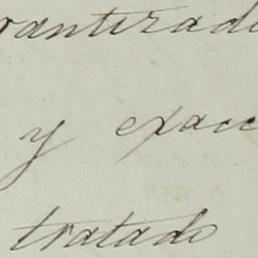 rantizado
y exacc
tratado